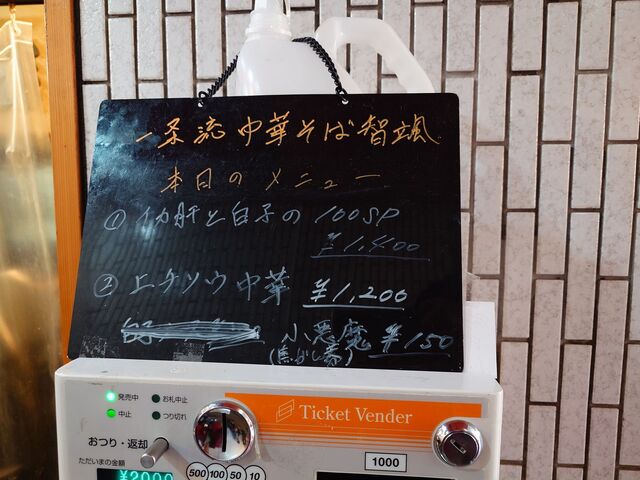 一条流中華そば智颯
本日のメニュー
① イカ肝と白子の 100SP
¥1,400
② 上ケソウ中華 ¥1,200
小悪魔 ¥150
(焦がし葱)
発売中
お札中止
中止
つり切れ
おつり・返却
Ticket Vender
ただいまの金額
¥2000
500 100 50 10
1000